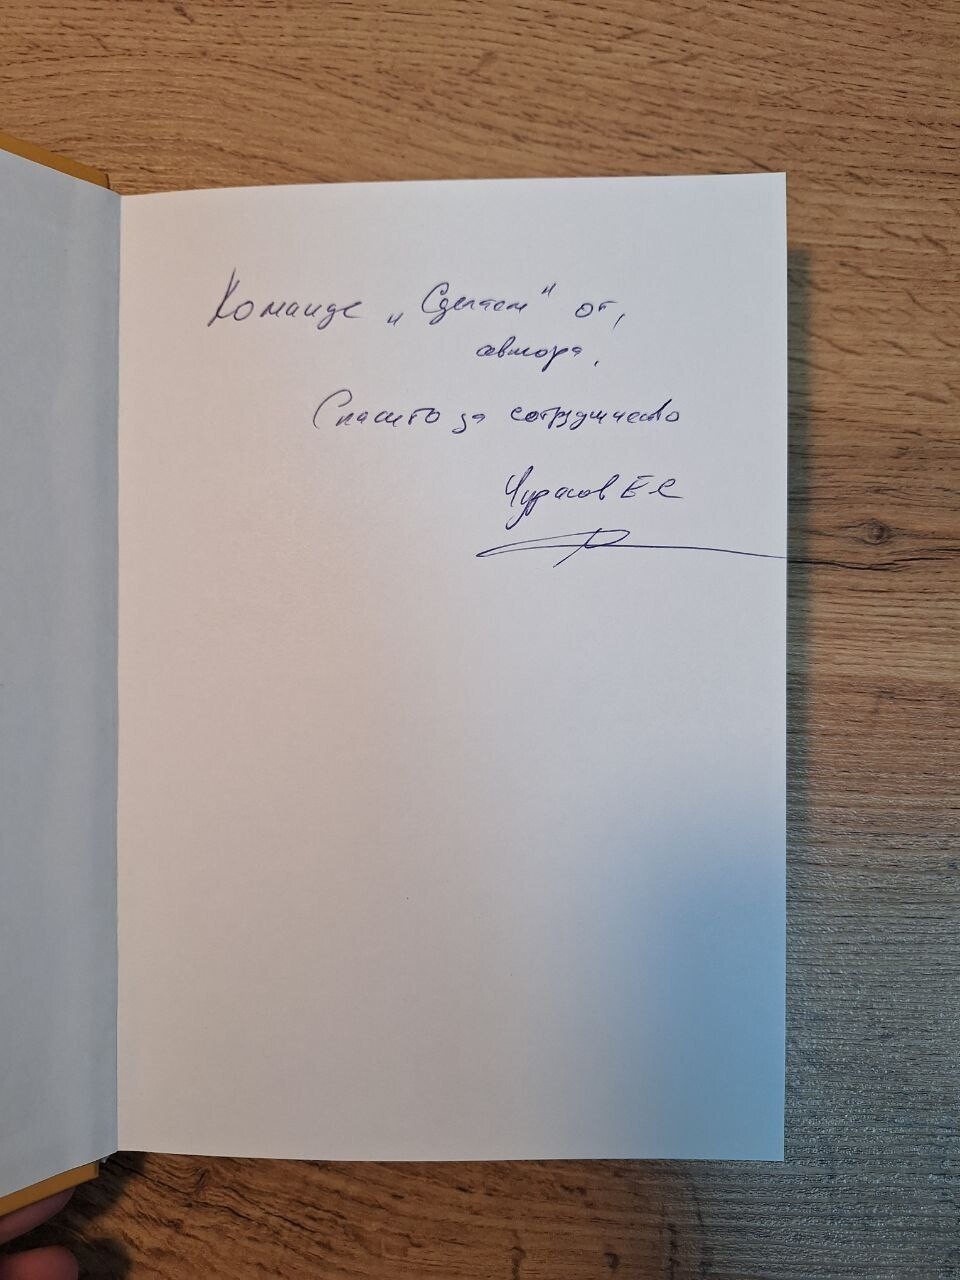 Команде „Сделаем" от
автора.
Спасибо за сотрудничество
Е С